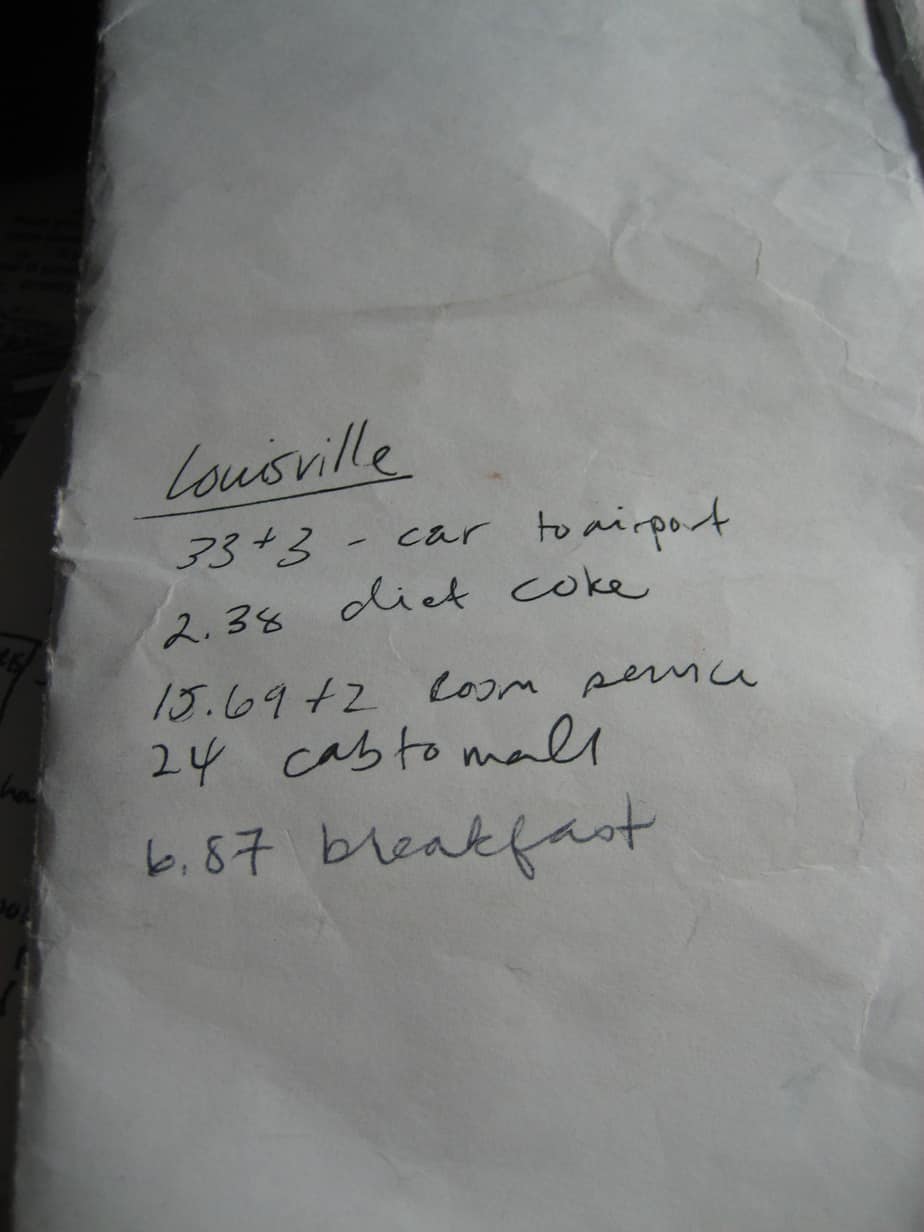 Louisville
33+3 - car to airport
2.38 diet coke
15.69+2 Room service
24 cab to mall
6.87 breakfast